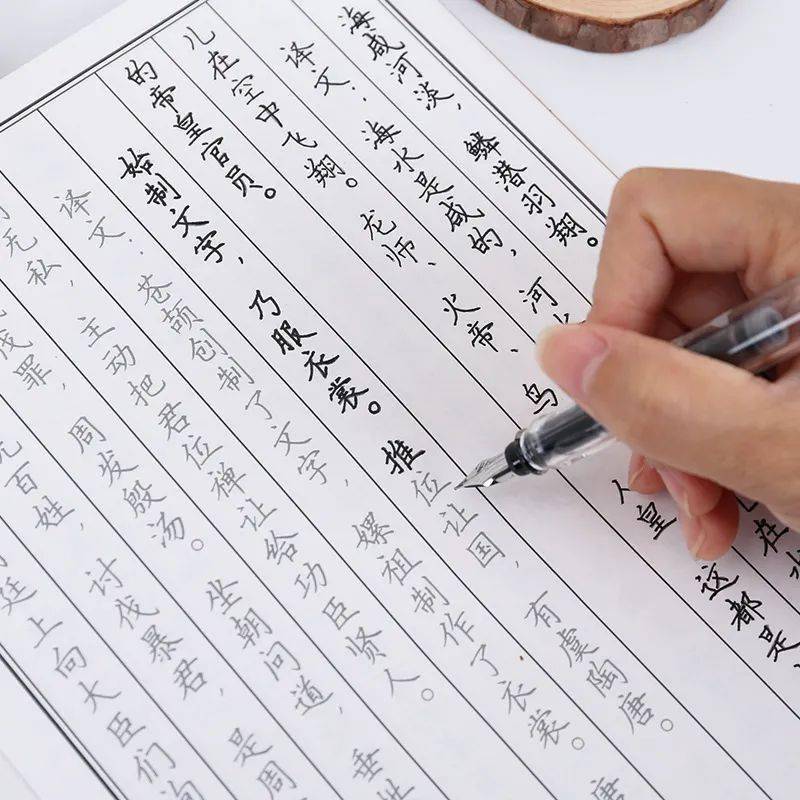 海咸河淡,鳞潜羽翔。
译文,海水是咸的,河
儿在空中飞翔。龙师、火帝、鸟 人皇 这都是
的帝皇官员。
始制文字,乃服衣裳。推位让国,有虞陶唐。
译文:苍颉创制了文字,嫘祖制作了衣裳。唐
无私,主动把君位禅让给功臣贤人。
伐罪,周发殷汤。坐朝问道,垂
百姓,讨伐暴君,是周
廷上向大臣们